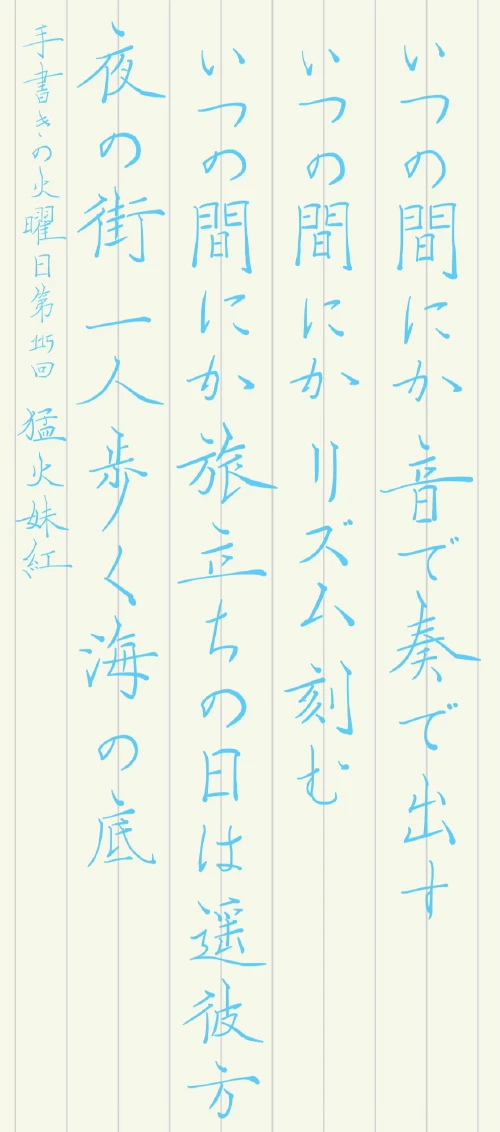 いつの間にか 音で奏で出す
いつの間にか リズム刻む
いつの間にか 旅立ちの日は遥彼方
夜の街 一人歩く海の底
手書きの火曜日第115回 猛火妹紅